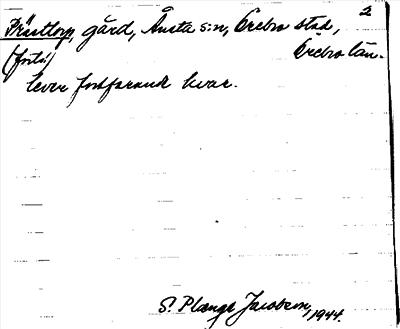 2
Prästtorp, gård, Ånsta s:n, Örebro stad,
(forts.) Örebro län.
lever fortfarande kvar.
S. Plænge Jacobson, 1944.